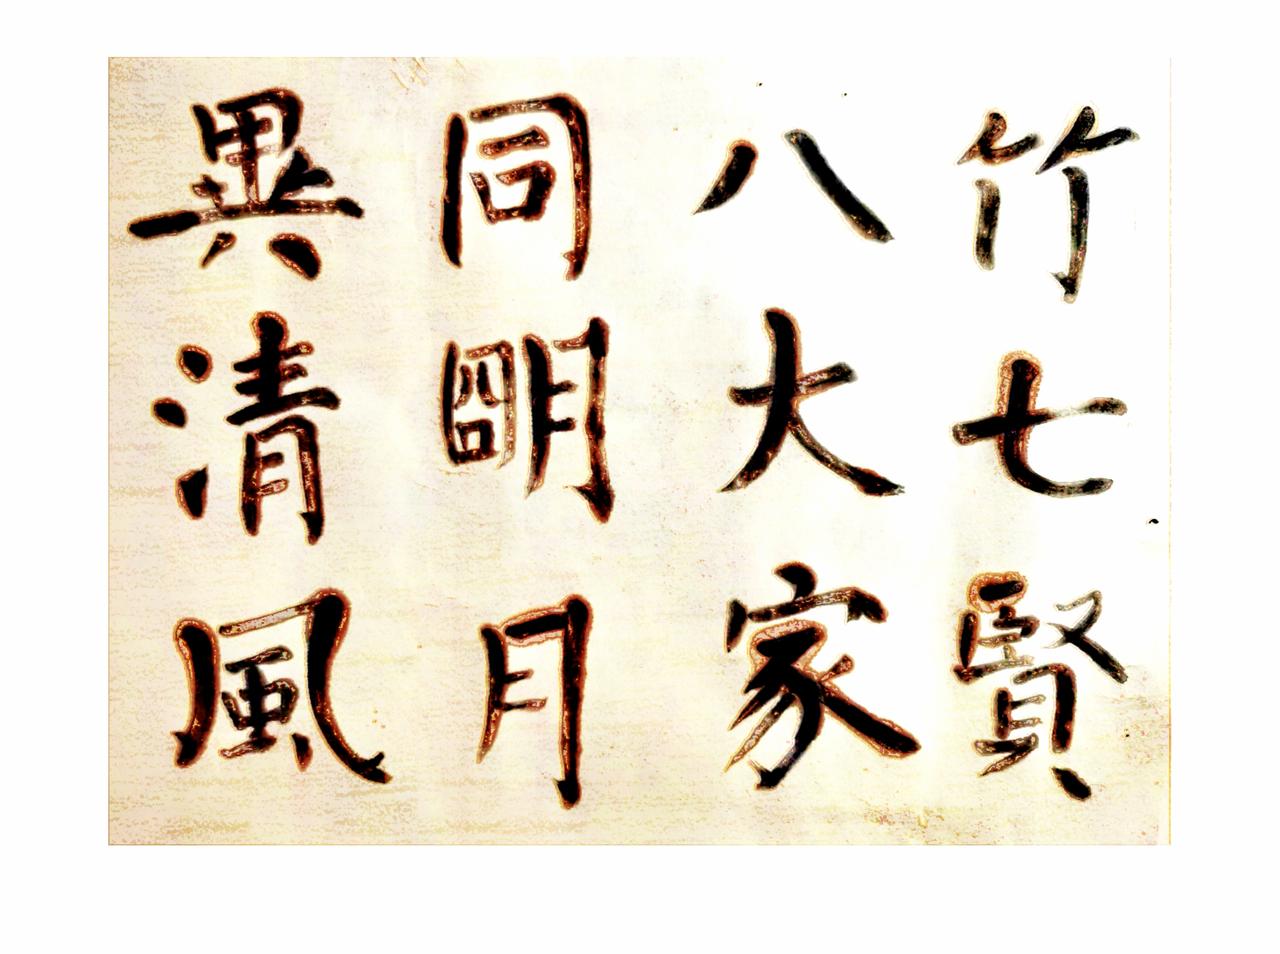 竹七賢
八大家
同明月
異清風